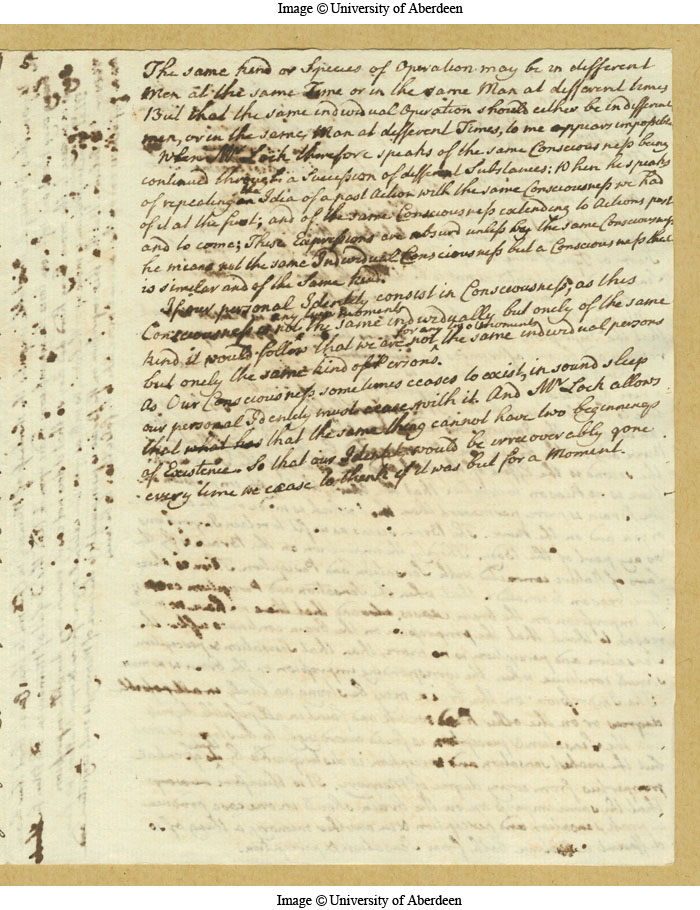 Image © University of Aberdeen
5
The same kind or Species of Operation may be in different
Men at the same Time or in the same Man at different times
But that the same individual Operation should either be in different
men, or in the same Man at different Times, to me appears impossible
When Mr Lock therefore speaks of the same Consciousness being
continued through a Succession of different Substances; When he speaks
of repeating the Idea of a past Action with the same Consciousness we had
of it at the first; and of the same Consciousness extending to Actions past
and to come; These Expressions are absurd unless by the same Consciousness
he means not the same Individual Consciousness but a Consciousness that
is similar and of the same kind.
If our personal Identity consist in Consciousness; as this
any two moments
Consciousness is not the same individually but onely of the same
for any two moments
kind it would follow that we are not the same individual persons
but onely the same kind of Persons.
As Our Consciousness sometimes ceases to exist, in sound sleep
our personal Identity must cease with it. And Mr Lock allows
that the same thing cannot have two beginnings
of Existence. So that our Identity would be irrecoverably gone
every time we cease to think if it was but for a Moment.
Image © University of Aberdeen